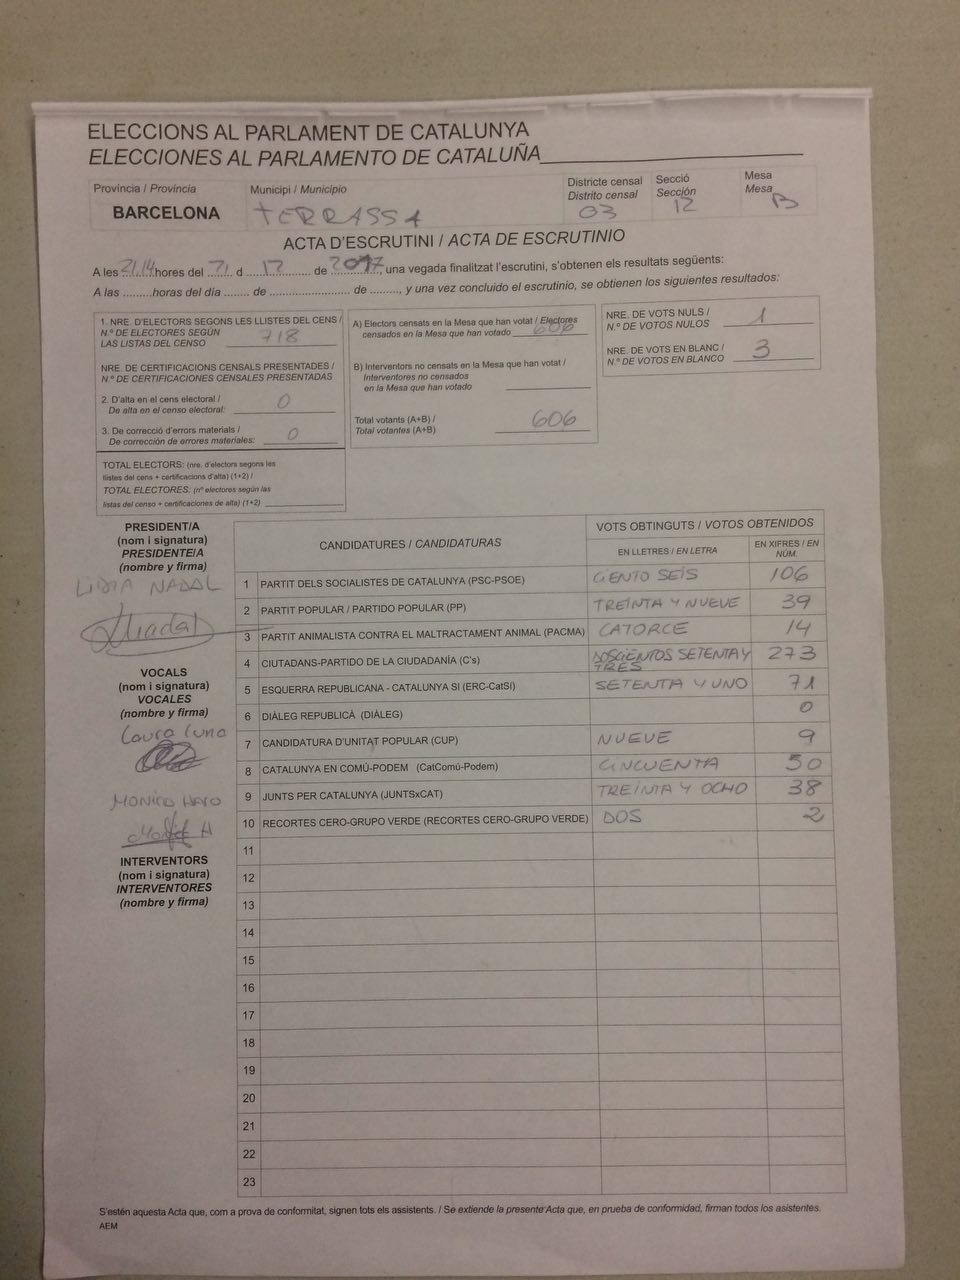 ELECCIONS AL PARLAMENT DE CATALUNYA
ELECCIONES AL PARLAMENTO DE CATALUÑA
Província / Provincia
BARCELONA
Municipi / Municipio
TERRASSA
Districte censal
Distrito censal
03
Secció
Sección
12
Mesa
Mesa
B
ACTA D'ESCRUTINI / ACTA DE ESCRUTINIO
A les 21,14 hores del 21 d 12 de 2017, una vegada finalitzat l'escrutini, s'obtenen els resultats següents:
A las .........horas del día ........ de ........................ de ........., y una vez concluido el escrutinio, se obtienen los siguientes resultados:
1. NRE. D'ELECTORS SEGONS LES LLISTES DEL CENS /
N.º DE ELECTORES SEGÚN
LAS LISTAS DEL CENSO 718
NRE. DE CERTIFICACIONS CENSALS PRESENTADES /
N.º DE CERTIFICACIONES CENSALES PRESENTADAS
2. D'alta en el cens electoral /
De alta en el censo electoral: 0
3. De correcció d'errors materials /
De corrección de errores materiales: 0
TOTAL ELECTORS: (nre. d'electors segons les
llistes del cens + certificacions d'alta) (1+2) /
TOTAL ELECTORES: (nº electores según las
listas del censo + certificaciones de alta) (1+2)
A) Electors censats en la Mesa que han votat / Electores
censados en la Mesa que han votado 606
B) Interventors no censats en la Mesa que han votat /
Interventores no censados
en la Mesa que han votado
Total votants (A+B) /
Total votantes (A+B) 606
NRE. DE VOTS NULS /
N.º DE VOTOS NULOS 1
NRE. DE VOTS EN BLANC /
N.º DE VOTOS EN BLANCO 3
PRESIDENT/A
(nom i signatura)
PRESIDENTE/A
(nombre y firma)
LIDIA NADAL
VOCALS
(nom i signatura)
VOCALES
(nombre y firma)
Laura Luna
MONICA HARO
INTERVENTORS
(nom i signatura)
INTERVENTORES
(nombre y firma)
CANDIDATURES / CANDIDATURAS
VOTS OBTINGUTS / VOTOS OBTENIDOS
EN LLETRES / EN LETRA
EN XIFRES / EN NÚM.
1 PARTIT DELS SOCIALISTES DE CATALUNYA (PSC-PSOE) CIENTO SEIS 106
2 PARTIT POPULAR / PARTIDO POPULAR (PP) TREINTA Y NUEVE 39
3 PARTIT ANIMALISTA CONTRA EL MALTRACTAMENT ANIMAL (PACMA) CATORCE 14
4 CIUTADANS-PARTIDO DE LA CIUDADANÍA (C's) DOSCIENTOS SETENTA Y TRES 273
5 ESQUERRA REPUBLICANA - CATALUNYA SI (ERC-CatSí) SETENTA Y UNO 71
6 DIÀLEG REPUBLICÀ (DIÀLEG) 0
7 CANDIDATURA D'UNITAT POPULAR (CUP) NUEVE 9
8 CATALUNYA EN COMÚ-PODEM (CatComú-Podem) CINCUENTA 50
9 JUNTS PER CATALUNYA (JUNTSxCAT) TREINTA Y OCHO 38
10 RECORTES CERO-GRUPO VERDE (RECORTES CERO-GRUPO VERDE) DOS 2
11
12
13
14
15
16
17
18
19
20
21
22
23
S'estén aquesta Acta que, com a prova de conformitat, signen tots els assistents. / Se extiende la presente Acta que, en prueba de conformidad, firman todos los asistentes.
AEM